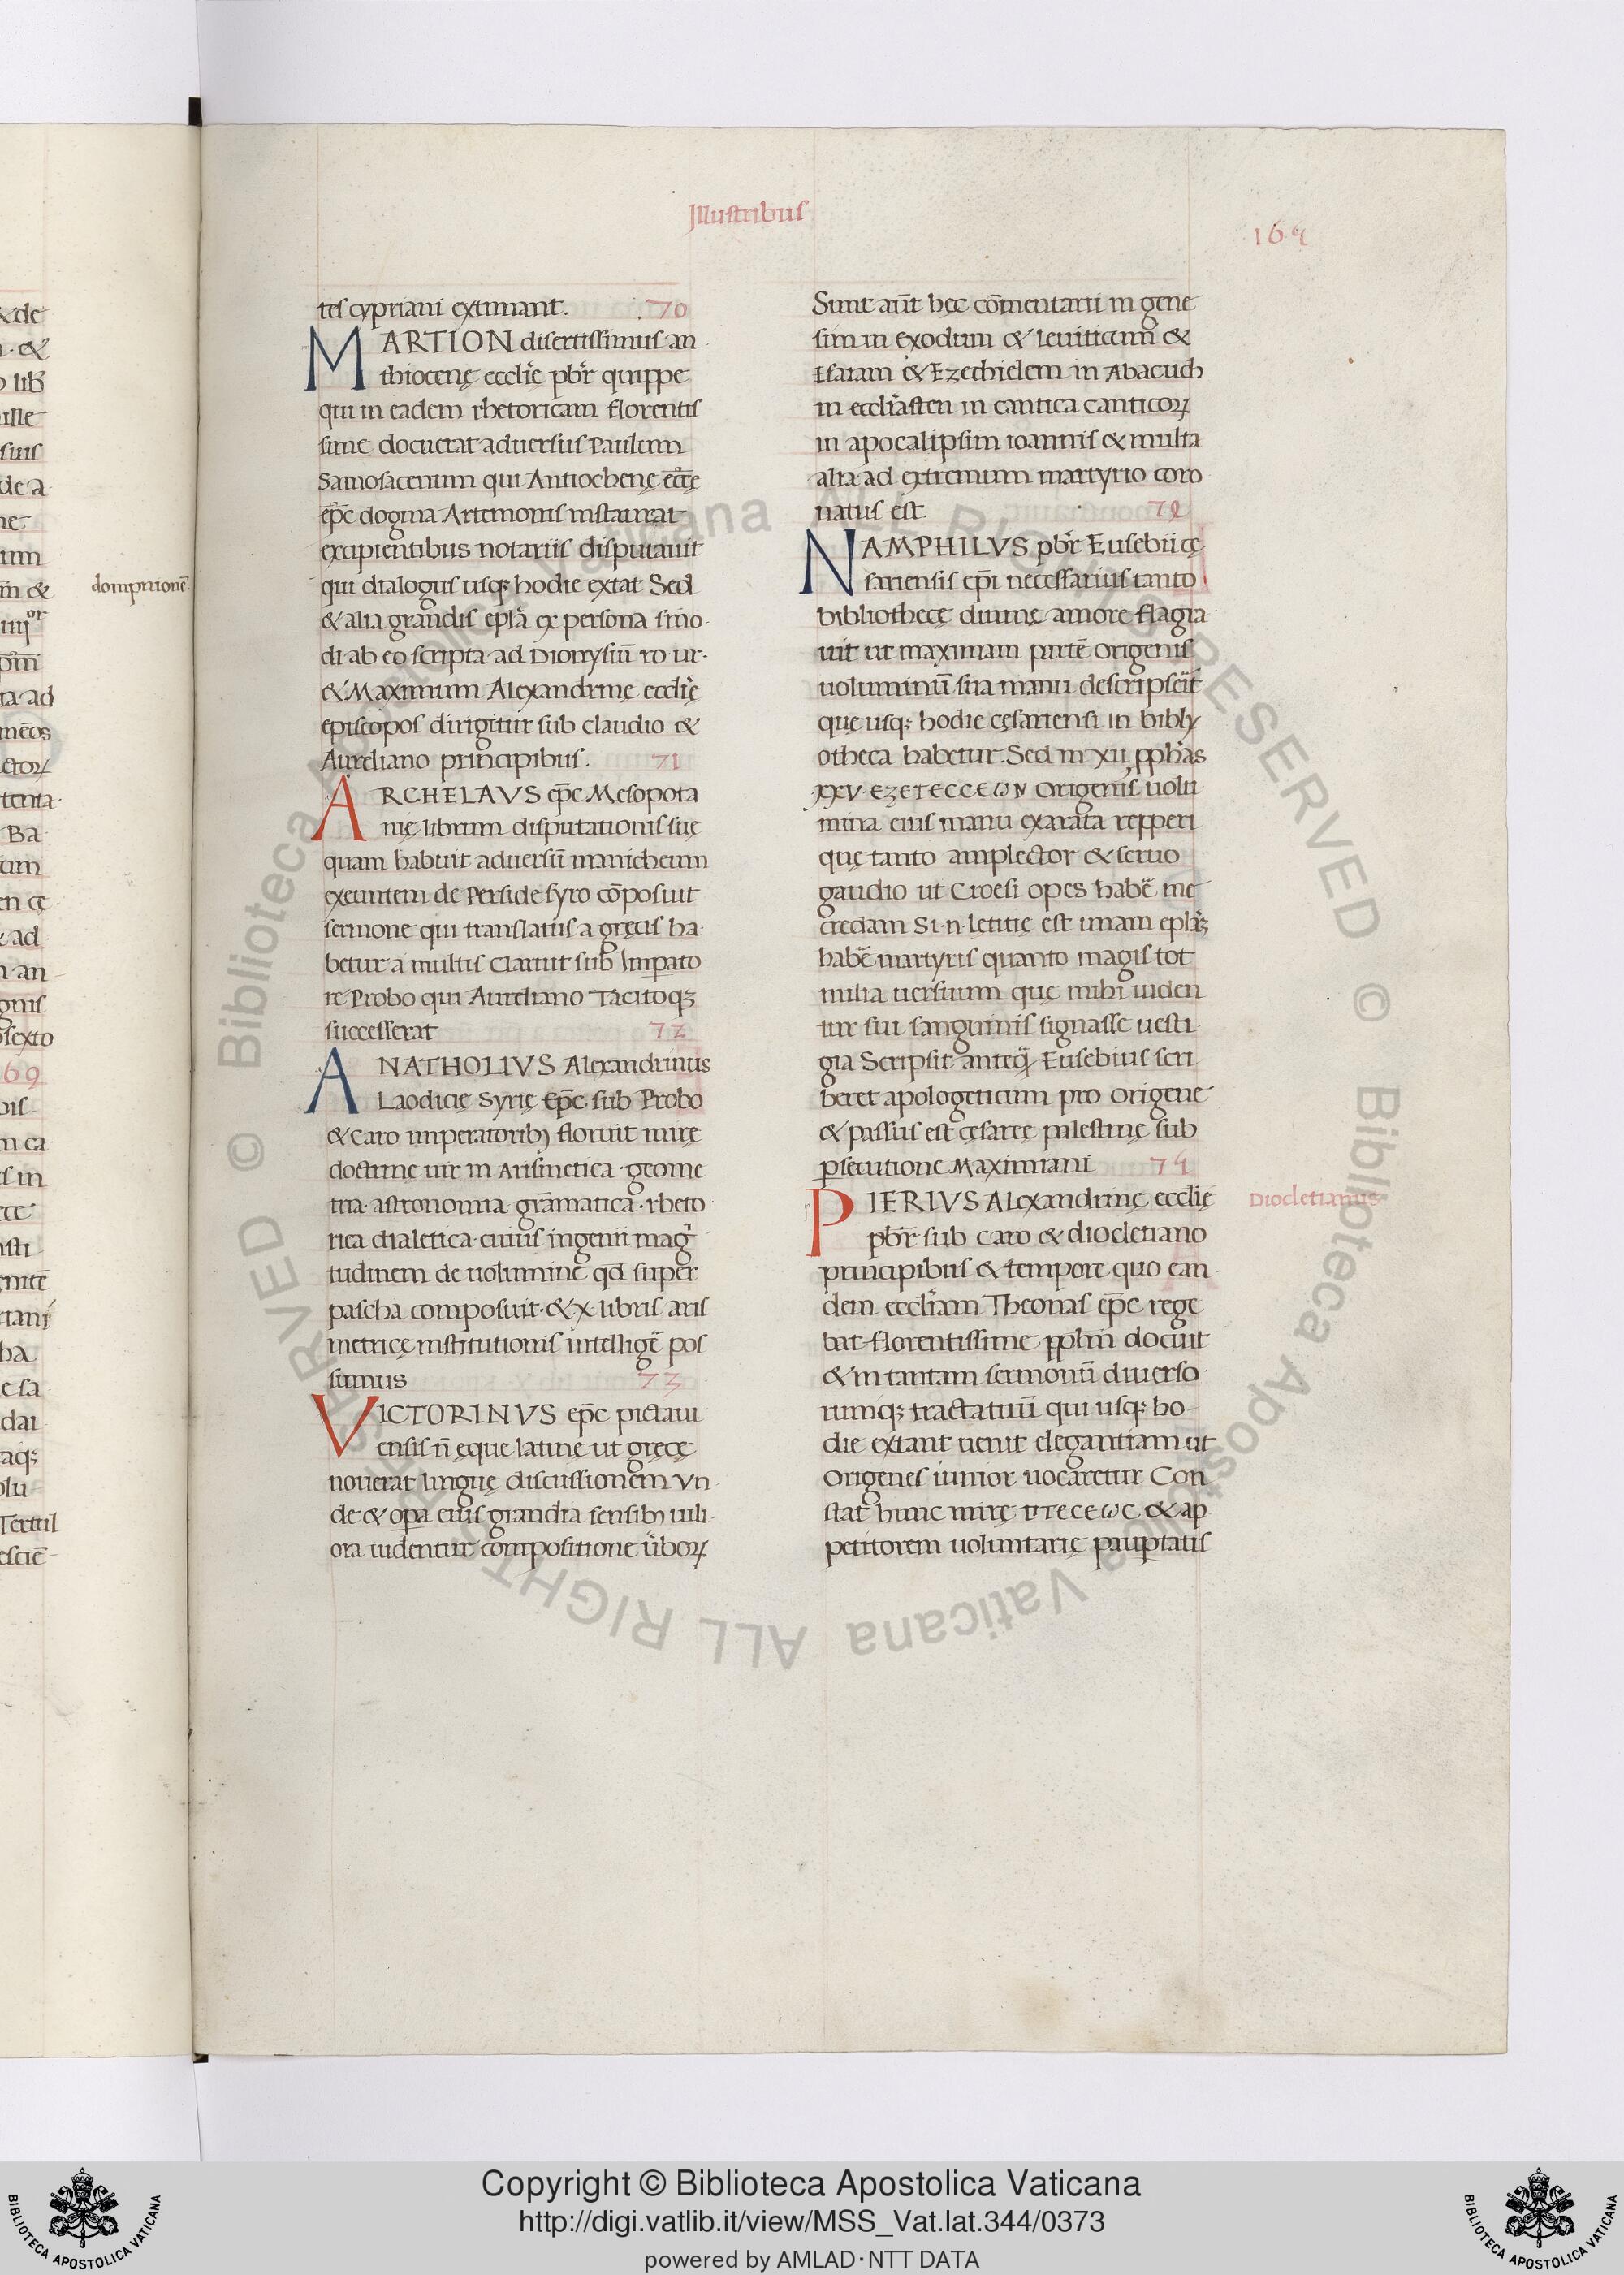 Illustribus
164
tes cypriani extimant. 70
MARTION disertissimus an
thiocenę ecclīe pbr̄ quippe
qui in eadem rhetoricam florentis
sime docuerat adversus Paulum
Samosacenum qui Antiochenę ecc̄ę
ep̄c dogma Artemonis instaurat
excipientibus notariis disputavit
qui dialogus usq; hodie extat Sed
& alia grandis epl̄a ex persona sino
di ab eo scripta ad Dionysiū ro·ur·
& Maximum Alexandrinę ecclīę
episcopos dirigitur sub claudio &
Aureliano principibus. 71
ARCHELAVS ep̄c Mesopota
mię librum disputationis suę
quam habuit adversū manicheum
exeuntem de Perside syro cōposuit
sermone qui translatus a gręcis ha
betur a multis Claruit sub Imperato
re Probo qui Aureliano Tacitoq;
successerat 72
ANATHOLIVS Alexandrinus
Laodicię Syrię Ep̄c sub Probo
& caro imperatorib; floruit mirę
doctrinę vir in Arismetica · geome
tria · astronomia · grāmatica · rheto
rica dialetica · cuius ingenii mag
tudinem de volumine qd̄ super
pascha composuit · & x libris aris
metricę institutionis intelligē pos
sumus 73
VICTORINVS ep̄c pictavi
ensis n̄ ęque latine ut gręcę
noverat linguę discussionem Vn
de & opa eius grandia sensib; vili
ora videntur compositione v̄boꝝ
Sunt aūt hęc cōmentarii in gene
sim in exodum & leviticum &
Esaiam & Ezechielem in Abacuch
in eccliasten in cantica canticoꝝ
in apocalipsim ioannis & multa
alia ad extremum martyrio coro
natus est
NAMPHILVS pbr̄ Eusebii cę
sariensis ep̄i necessarius tanto
bibliothecę divinę amore flagra
vit ut maximam partē origenis
voluminū sua manu descripserit
quę usq; hodie cęsariensi in bibly
otheca habetur. Sed in XII pphas
XXV·EZETECCEωN origenis volu
mina eius manu exarata repperi
quę tanto amplector & servo
gaudio ut Croesi opes habē me
credam Si·n·letitię est unam epl̄a;
habē martyris quanto magis tot
milia versuum quę mihi viden
tur sui sanguinis signasse vesti
gia Scripsit anteq̄ Eusebius scri
beret apologeticum pro origene
& passus est cęsaręę palestinę sub
ꝑsecutione Maximiani 74
PIERIVS Alexandrinę ecclię
pbr̄ sub caro & diocletiano
principibus & tempore quo ean
dem eccliam Theonas ep̄c rege
bat florentissime pplm̄ docuit
& in tantam sermonū diverso
rumq; tractatuū qui usq; ho
die extant venit elegantiam ut
Origenes iunior vocaretur Con
stat hunc mirę ΠTECEωC & ap
petitorem voluntarię paupertatis
Diocletianus
dompruionē
Copyright © Biblioteca Apostolica Vaticana
http://digi.vatlib.it/view/MSS_Vat.lat.344/0373
powered by AMLAD·NTT DATA
BIBLIOTECA APOSTOLICA VATICANA
BIBLIOTECA APOSTOLICA VATICANA